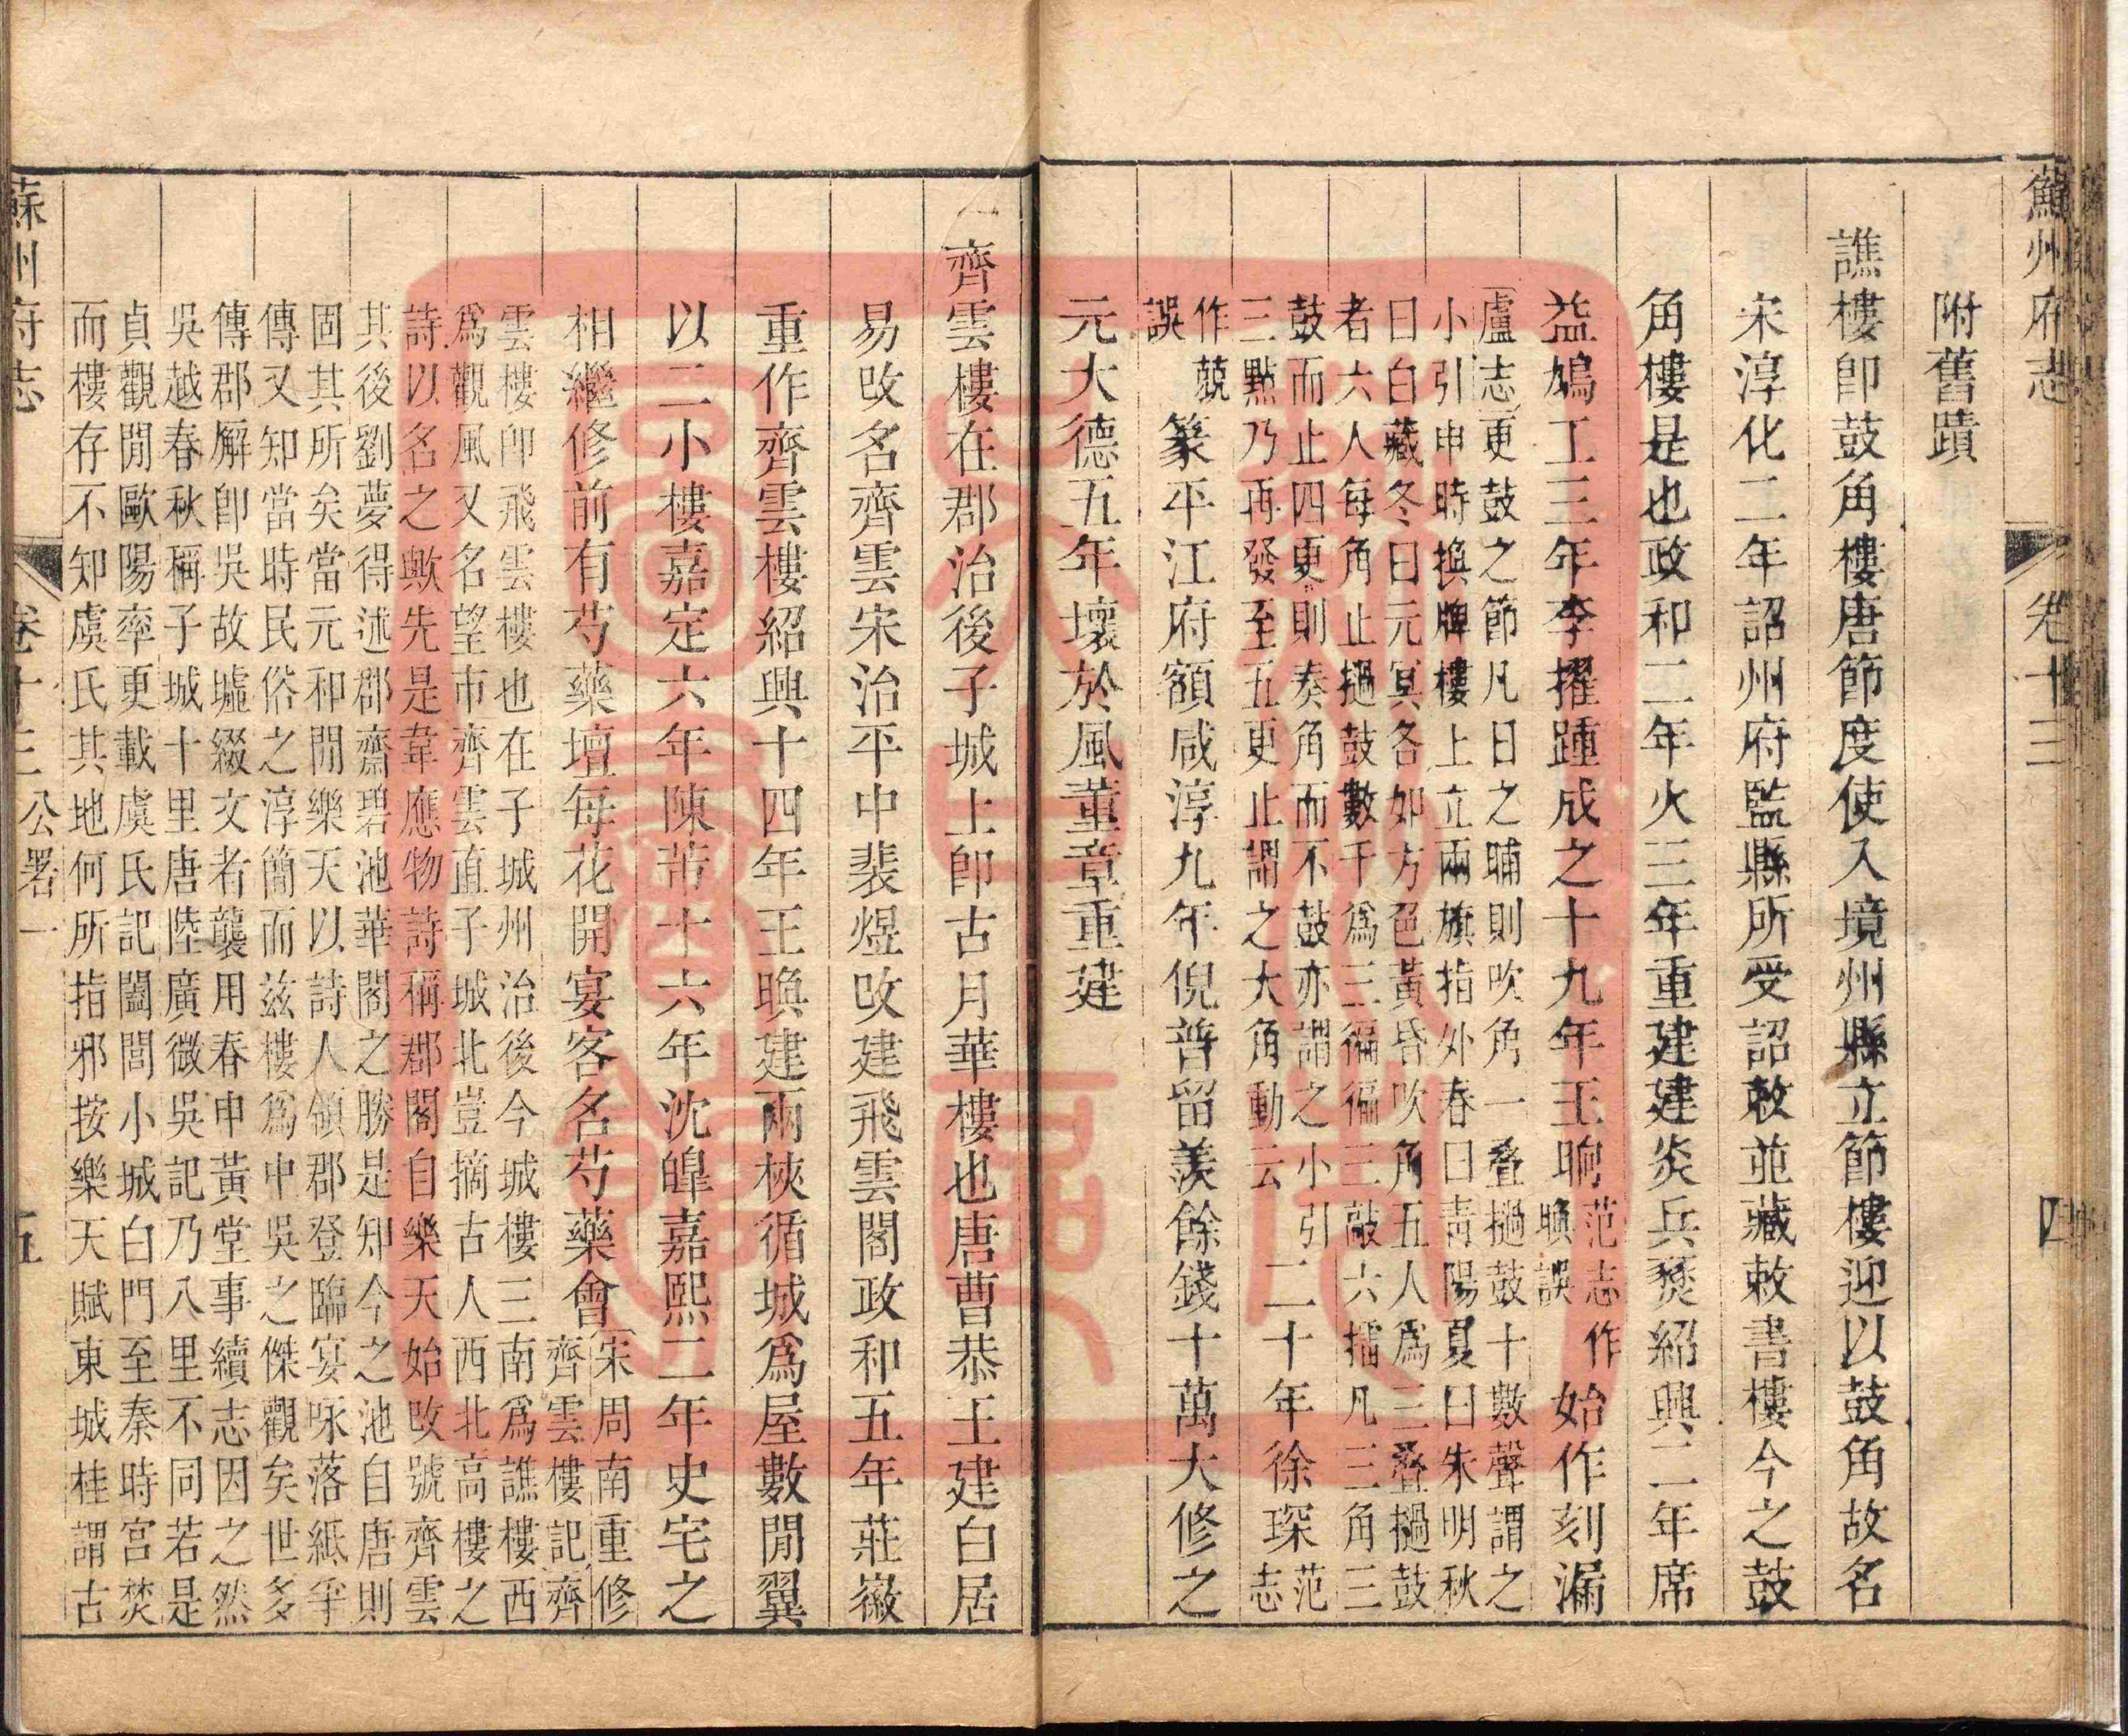 蘇州府志
卷十三
四
附舊蹟
譙樓卽鼓角樓唐節度使入境州縣立節樓迎以鼓角故名
宋淳化二年詔州府監縣所受詔敕並藏敕書樓今之鼓
角樓是也政和二年火三年重建建炎兵燹紹興二年席
益鳩工三年李擢踵成之十九年王晌
范志作
㬇誤
始作刻漏
盧志更鼓之節凡日之晡則吹角一叠撾鼓十數聲謂之
小引申時換牌樓上立兩旗指外春曰靑陽夏曰朱明秋
曰白藏冬曰元冥各如方色黃昏吹角五人爲三叠撾鼓
者六人每角止撾鼓數千爲三徧徧三敲六擂凡三角三
鼓而止四更則奏角而不鼓亦謂之小引
三點乃再發至五更止謂之大角動云
二十年徐琛
范志
作兢
誤
篆平江府額咸淳九年倪普留羨餘錢十萬大修之
元大德五年壞於風董章重建
齊雲樓在郡治後子城上卽古月華樓也唐曹恭王建白居
易改名齊雲宋治平中裴煜改建飛雲閣政和五年莊徽
重作齊雲樓紹興十四年王㬇建兩挾循城爲屋數閒翼
以二小樓嘉定六年陳芾十六年沈皥嘉熙二年史宅之
相繼修前有芍藥壇每花開宴客名芍藥會
宋周南重修
齊雲樓記齊
雲樓卽飛雲樓也在子城州治後今城樓三南爲譙樓西
爲觀風又名望市齊雲直子城北豈摘古人西北高樓之
詩以名之歟先是韋應物詩稱郡閣自樂天始改號齊雲
其後劉夢得述郡齋碧池華閣之勝是知今之池自唐則
固其所矣當元和閒樂天以詩人領郡登臨宴咏落紙爭
傳又知當時民俗之淳簡而兹樓爲中吳之傑觀矣世多
傳郡廨卽吳故墟綴文者襲用春申黃堂事續志因之然
吳越春秋稱子城十里唐陸廣微吳記乃八里不同若是
貞觀閒歐陽率更載虞氏記闔閭小城白門至秦時宮焚
而樓存不知虞氏其地何所指邪按樂天賦東城桂謂古
蘇州府志
卷十三公署一
五